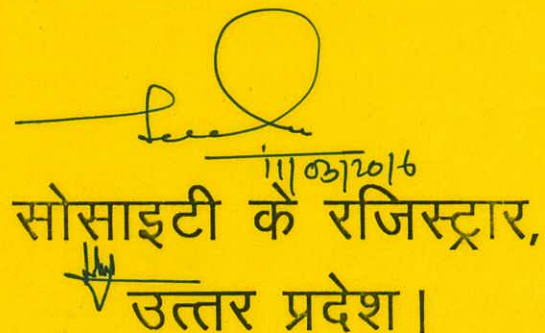 11/03/2016
सोसाइटी के रजिस्ट्रार,
उत्तर प्रदेश।